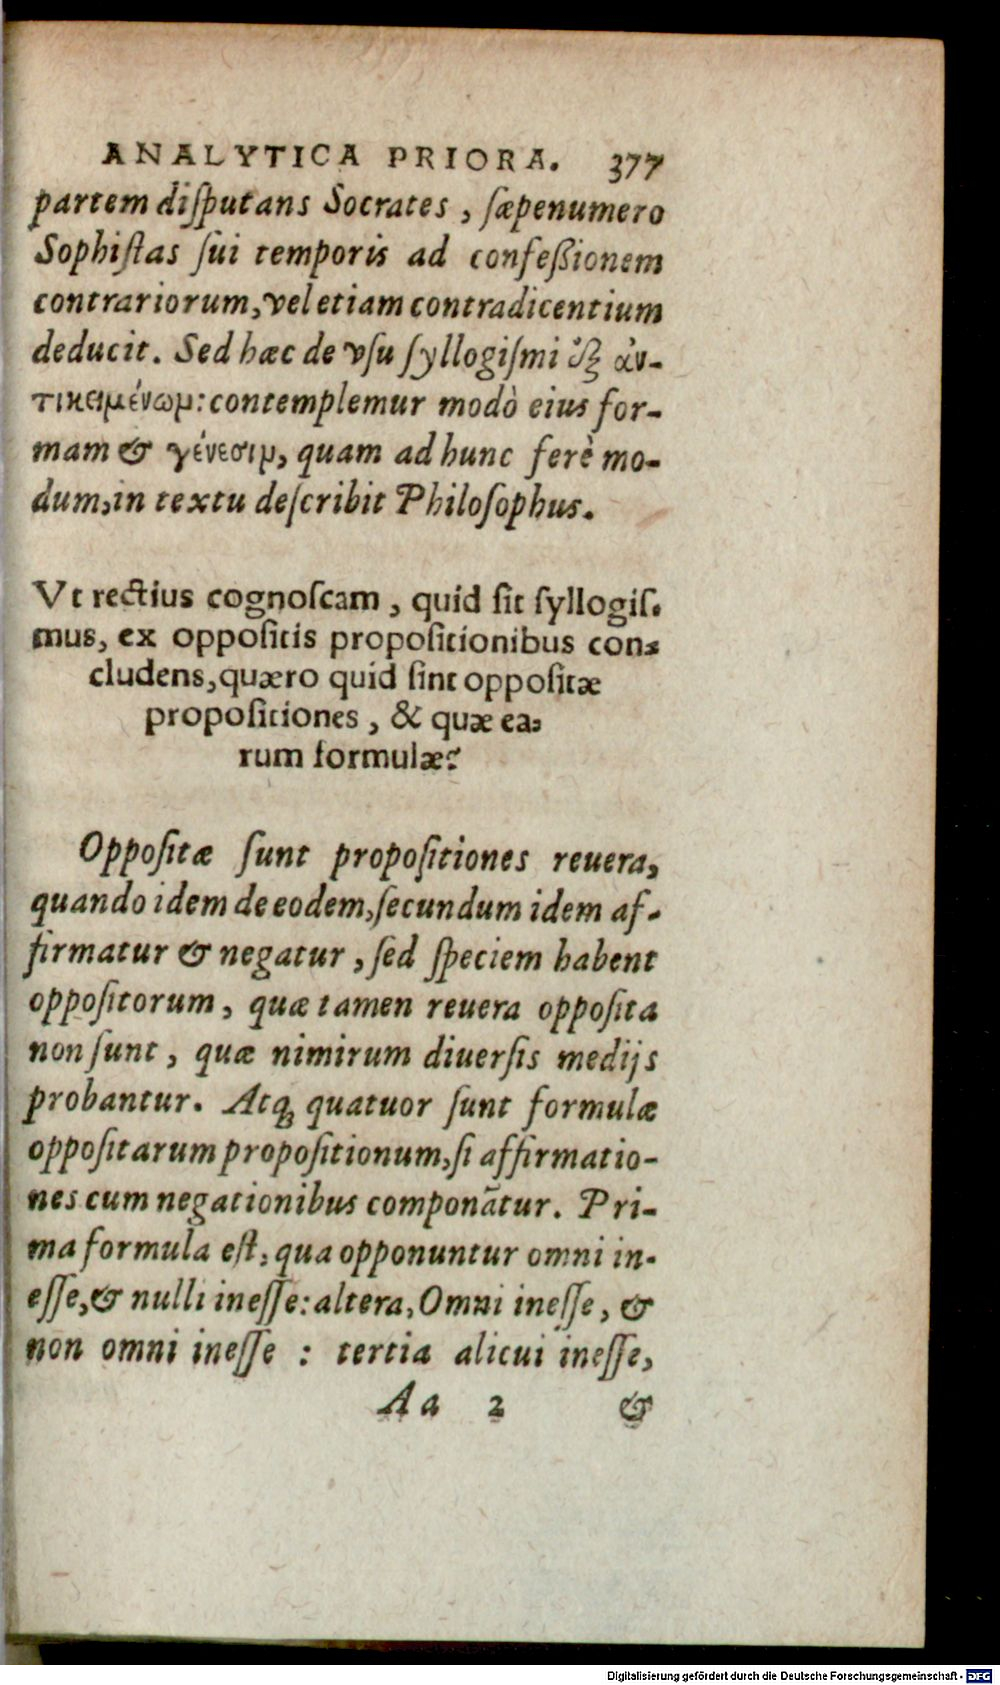 ANALYTICA PRIORA. 377
partem diſputans Socrates, ſæpenumero
Sophiſtas ſui temporis ad confeßionem
contrariorum, vel etiam contradicentium
deducit. Sed hæc de vſu ſyllogiſmi ἐξ ἀν-
τικειμένωμ: contemplemur modò eius for-
mam & γένεσιμ, quam ad hunc ferè mo-
dum, in textu deſcribit Philoſophus.
Vt rectius cognoſcam, quid ſit ſyllogiſ-
mus, ex oppoſitis propoſitionibus con-
cludens, quæro quid ſint oppoſitæ
propoſitiones, & quæ ea-
rum formulæ?
Oppoſitæ ſunt propoſitiones reuera,
quando idem de eodem, ſecundum idem af-
firmatur & negatur, ſed ſpeciem habent
oppoſitorum, quæ tamen reuera oppoſita
non ſunt, quæ nimirum diuerſis medijs
probantur. Atq; quatuor ſunt formulæ
oppoſitarum propoſitionum, ſi affirmatio-
nes cum negationibus componãtur. Pri-
ma formula eſt, qua opponuntur omni in-
eſſe, & nulli ineſſe: altera, Omni ineſſe, &
non omni ineſſe : tertia alicui ineſſe,
Aa 2 &
Digitalisierung gefördert durch die Deutsche Forschungsgemeinschaft - DFG